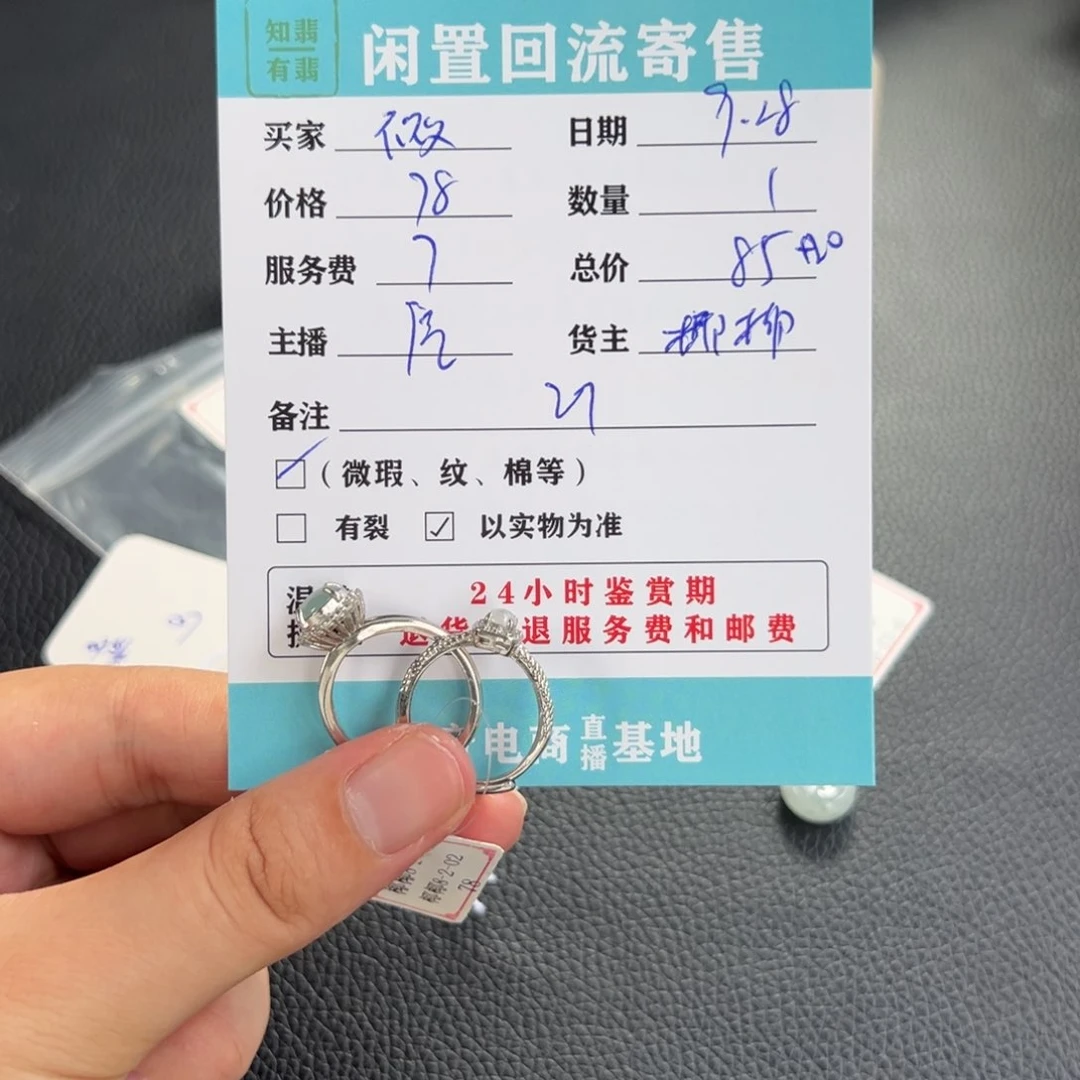 知翡
有翡
闲置回流寄售
买家 日期 9.28
价格 78 数量 1
服务费 7 总价 85
主播 货主 梛梛
备注 21
（微瑕、纹、棉等）
有裂 ☑ 以实物为准
24小时鉴赏期
退货 退服务费和邮费
电商直播基地
8-2-02
78